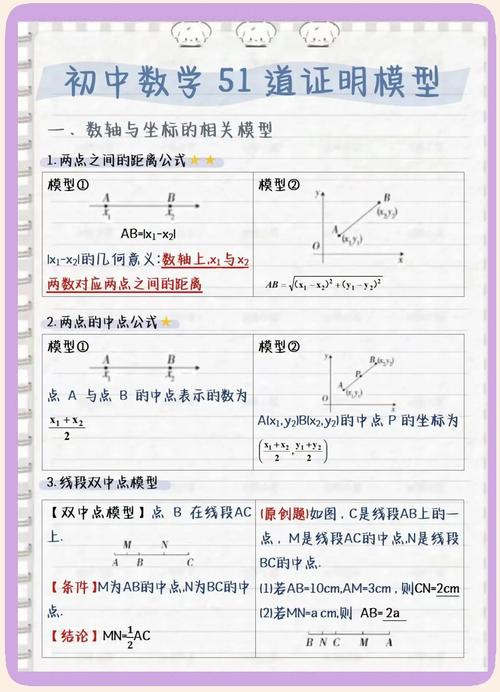 初中数学 51 道证明模型
一、数轴与坐标的相关模型
1.两点之间的距离公式
模型①
A B
x₁ x₂
AB=|x₁-x₂|
|x₁-x₂|的几何意义:数轴上,x₁与x₂
两数对应两点之间的距离
模型②
y
B
(x₂,y₂)
A
(x₁,y₁)
O
x
AB=√(x₁-x₂)²+(y₁-y₂)²
2.两点的中点公式
模型①
A B
x₁ x₂
点 A 与点 B 的中点表示的数为
x₁+x₂
2
模型②
y
B(x₂,y₂)
P
A
(x₁,y₁)
O
x
A(x₁,y₂)B(x₂,y₂)的中点 P 的坐标为
(x₁+x₂/2, y₁+y₂/2)
3.线段双中点模型
【双中点模型】点 B 在线段AC
上.
M N
A B C
【条件】M为AB的中点,N为BC的中
点.
【结论】MN=1/2AC
(原创题)如图,C是线段AB上的一
点,M是线段AC的中点,N是线段
BC的中点.
(1)若AB=10cm,AM=3cm,则CN=2cm
(2)若MN=a cm,则 AB=2a
B N C M A